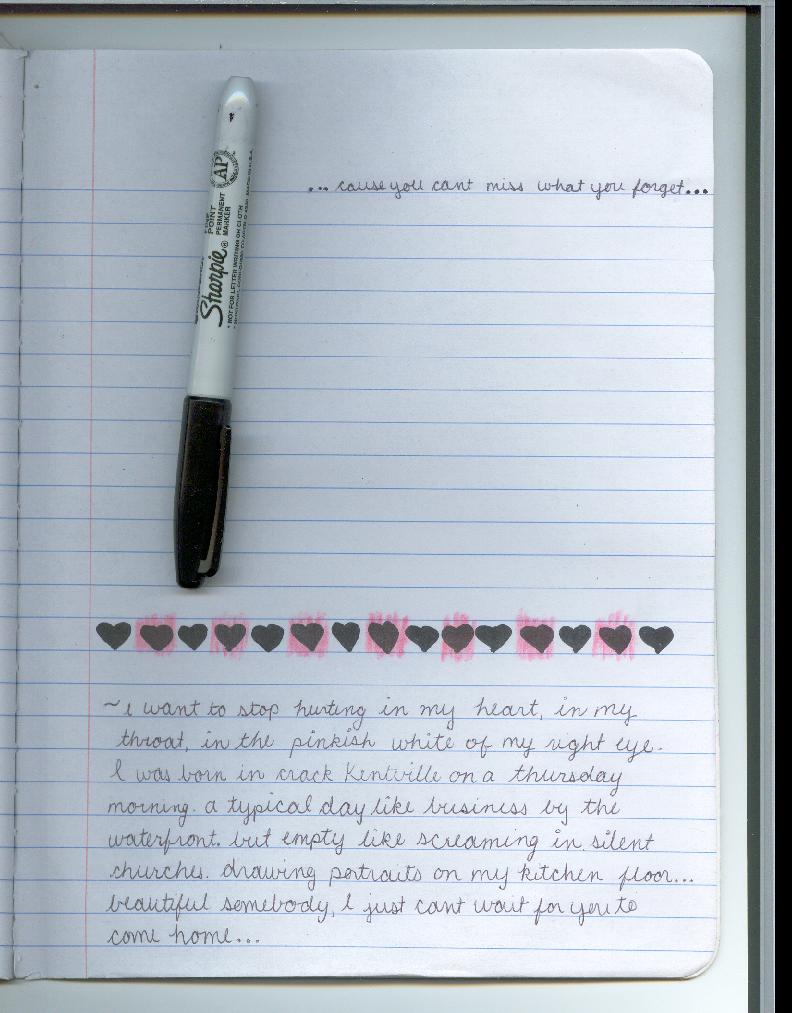 ... cause you cant miss what you forget...
AP
FINE POINT
PERMANENT
MARKER
Sharpie®
• NOT FOR LETTER WRITING OR CLOTH
~ i want to stop hurting in my heart, in my
throat, in the pinkish white of my right eye.
I was born in crack Kentville on a thursday
morning. a typical day like business by the
waterfront. but empty like screaming in silent
churches. drawing portraits on my kitchen floor...
beautiful somebody, I just cant wait for you to
come home...